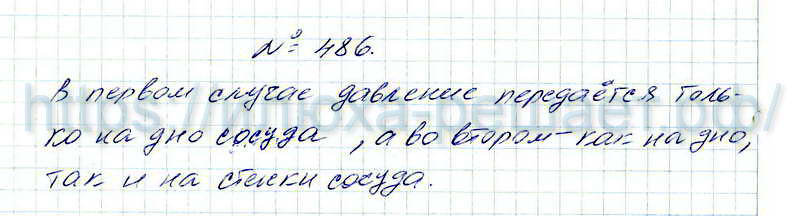 № 486.
В первом случае давление передаётся толь-
ко на дно сосуда, а во втором – как на дно,
так и на стенки сосуда.